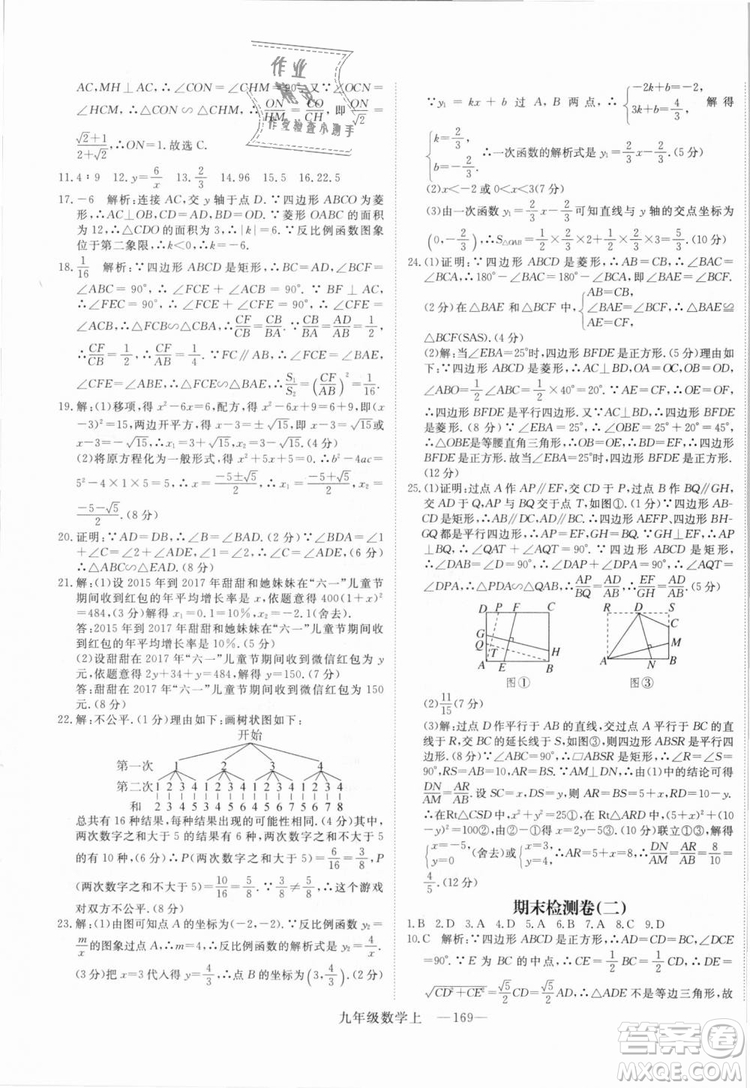 作业
精灵
作业检查小助手
AC,MH⊥AC,∴∠CON=∠CHM=90°.又∵∠OCN=
∠HCM,∴△CON∽△CHM,∴ON/HM=OC/CH,即ON/√2=
(√2+1)/(2+√2),∴ON=1.故选C.
11.4∶9 12.y=6/x 13.2/3 14.96 15.5 16.22.5
17.-6 解析:连接AC,交y轴于点D.∵四边形ABCO为菱
形,∴AC⊥OB,且CD=AD,BD=OD.∵菱形OABC的面积
为12,∴△CDO的面积为3,∴|k|=6.∵反比例函数图象
位于第二象限,∴k<0,∴k=-6.
18.1/16 解析:∵四边形ABCD是矩形,∴∠ABC=∠BCF=
∠ABC=90°,∴∠ABF+∠CBF=90°.∵BF⊥AC,∴
∠BEC=∠AEB=∠CEF=90°,∴∠BAC+∠ABF=90°,∴
∠CBF=∠BAC.又∵∠BCF=∠ABC=∠CFE=90°,∴
△CFE∽△BCF∽△CBA,∴CF/CB=CB/BA=1/2,∴
CF/BA=1/4,∴CF/BA=1/4.∵△CEF∽△AEB,∴S₁/S₂=(CF/BA)²=1/16.
19.解:(1)移项,得x²-6x=6,配方,得x²-6x+9=6+9,即(x
-3)²=15,两边开平方,得x-3=±√15,∴x-3=√15或
x-3=-√15,∴x₁=3+√15,x₂=3-√15.(4分)
(2)将原方程化为一般形式,得x²+5x+5=0.∵b²-4ac=
5²-4×1×5=5,∴x=(-5±√5)/2,∴x₁=(-5+√5)/2,x₂=
(-5-√5)/2.(8分)
20.证明:∵AD=DB,∴∠B=∠BAD.(2分)∵∠BDA=∠1
+∠C=∠2+∠ADE,∠1=∠2,∴∠C=∠ADE.(6分)∴
△ABC∽△EAD.(8分)
21.解:(1)设2015年到2017年甜甜和她妹妹在“六一”儿童节
期间收到红包的年平均增长率是x.依题意得400(1+x)²
=484,(3分)解得x₁=0.1=10%,x₂=-2.1(舍去).
答:2015年到2017年甜甜和她妹妹在“六一”儿童节期间收
到红包的年平均增长率是10%.(5分)
(2)设甜甜在2017年“六一”儿童节期间收到微信红包为y
元.依题意得2y+34+y=484,(7分)解得y=150.
答:甜甜在2017年“六一”儿童节期间收到微信红包为150
元.(8分)
22.解:不公平.(1分)理由如下:画树状图如下:
开始
第一次 1 2 3 4
第二次 1 2 3 4 1 2 3 4 1 2 3 4 1 2 3 4
和 2 3 4 5 3 4 5 6 4 5 6 7 5 6 7 8
总共有16种结果,每种结果出现的可能性相同.(4分)其中,
两次数字之和大于5的结果有6种,两次数字之和不大于5
的结果有10种.(6分)∴P(两次数字之和大于5)=6/16=3/8,
P(两次数字之和不大于5)=10/16=5/8.∵3/8≠5/8,∴此游戏
对双方不公平.(8分)
23.解:(1)由图可知点A的坐标为(-2,-2).∵反比例函数y₂=
m/x的图象过点A,∴m=4,∴反比例函数的解析式是y₂=4/x.
(3分)把x=3代入,得y=4/3,∴点B的坐标为(3,4/3).(4分)
∵y₁=kx+b过A、B两点,∴{-2k+b=-2, 3k+b=4/3,解得
{k=2/3, b=-2/3,∴一次函数的解析式是y₁=2/3x-2/3.(5分)
(2)x<-2或0<x<3(7分)
(3)由一次函数y₁=2/3x-2/3可知直线与y轴的交点坐标为
(0,-2/3),∴S△AOB=1/2×2/3×2+1/2×2/3×3=5/3.(10分)
24.证明:(1)∵四边形ABCD是菱形,∴AB=BC,∠BAC=
∠BCA,∴180°-∠BAC=180°-∠BCA,即∠BAE=∠BCF.
(2分)在△BAE和△BCF中,{AB=CB, ∠BAE=∠BCF, AE=CF,∴△BAE≌
△BCF(SAS).(4分)
(2)解:当∠EBA=25°时,四边形BFDE是正方形.(5分)理由如
下:∵四边形ABCD是菱形,∴AC⊥BD,OA=OC,OB=OD,
∠ABO=1/2∠ABC=1/2×40°=20°.∵AE=CF,∴OE=OF.(7分)
∵OB=OD,∴四边形BFDE是平行四边形.又∵AC⊥BD,∴四边形BFDE是
菱形.∵∠EBA=25°,∴∠OBE=25°+20°=45°.(9分)∵AC⊥BD,
∴△OBE是等腰直角三角形,∴OB=OE,∴BD=EF,∴四边形BFDE是正方形.
(12分)
25.(1)证明:过点A作AP∥EF,交CD于P,过点B作BQ∥GH,
交AD于Q,AP与BQ交于点T,如图①.(1分)∵四边形AB-
CD是矩形,∴AB∥DC,AD∥BC.∴四边形AEFP、四边形BHGQ
都是平行四边形,∴AP=EF,GH=BQ.∵GH⊥EF,∴AP⊥BQ,∴
∠QAT+∠AQT=90°.∵四边形ABCD是矩形,∴∠DAB=
∠D=90°,∴∠DAP+∠DPA=90°,∴∠AQT=
∠DPA,∴△PDA∽△QAB,∴AP/BQ=AD/AB,∴EF/GH=AD/AB.(4分)
D P F C
Q
G
T
H
A E B
图①
R D S
C
M
A N B
图③
(2)11/15(7分)
(3)解:过点D作平行于AB的直线,交过点A平行于BC的直
线于R,交BC的延长线于S,如图③,则四边形ABSR是平行四边
形.∵∠ABC=90°,∴□ABSR是矩形,∴∠R=∠S=90°,RS=
AB=10,AR=BS.∵AM⊥DN,∴由(1)中的结论可得
DN/AM=AR/AB.设SC=x,DS=y,则AR=BS=5+x,RD=10-y,∴
在Rt△CSD中,x²+y²=25①,在Rt△ARD中,(5+x)²+(10
-y)²=100②,由②-①得x=2y-5③,①③联立得{x=-5, y=0,(舍去)或{x=3, y=4,∴AR=5+x=8,∴DN/AM=AR/AB=8/10=
4/5.(12分)
期末检测卷(二)
1.B 2.D 3.A 4.D 5.A 6.B 7.A 8.C 9.D
10.C 解析:∵四边形ABCD是正方形,∴AD=BC,∠DCE
=90°.∵E为BC的中点,∴CE=1/2BC=1/2CD,∴DE=
√(CD²+CE²)=√5CE≠AD,∴△ADE不是等边三角形,故
九年级数学上 —169—
答案圈
MXQE.COM